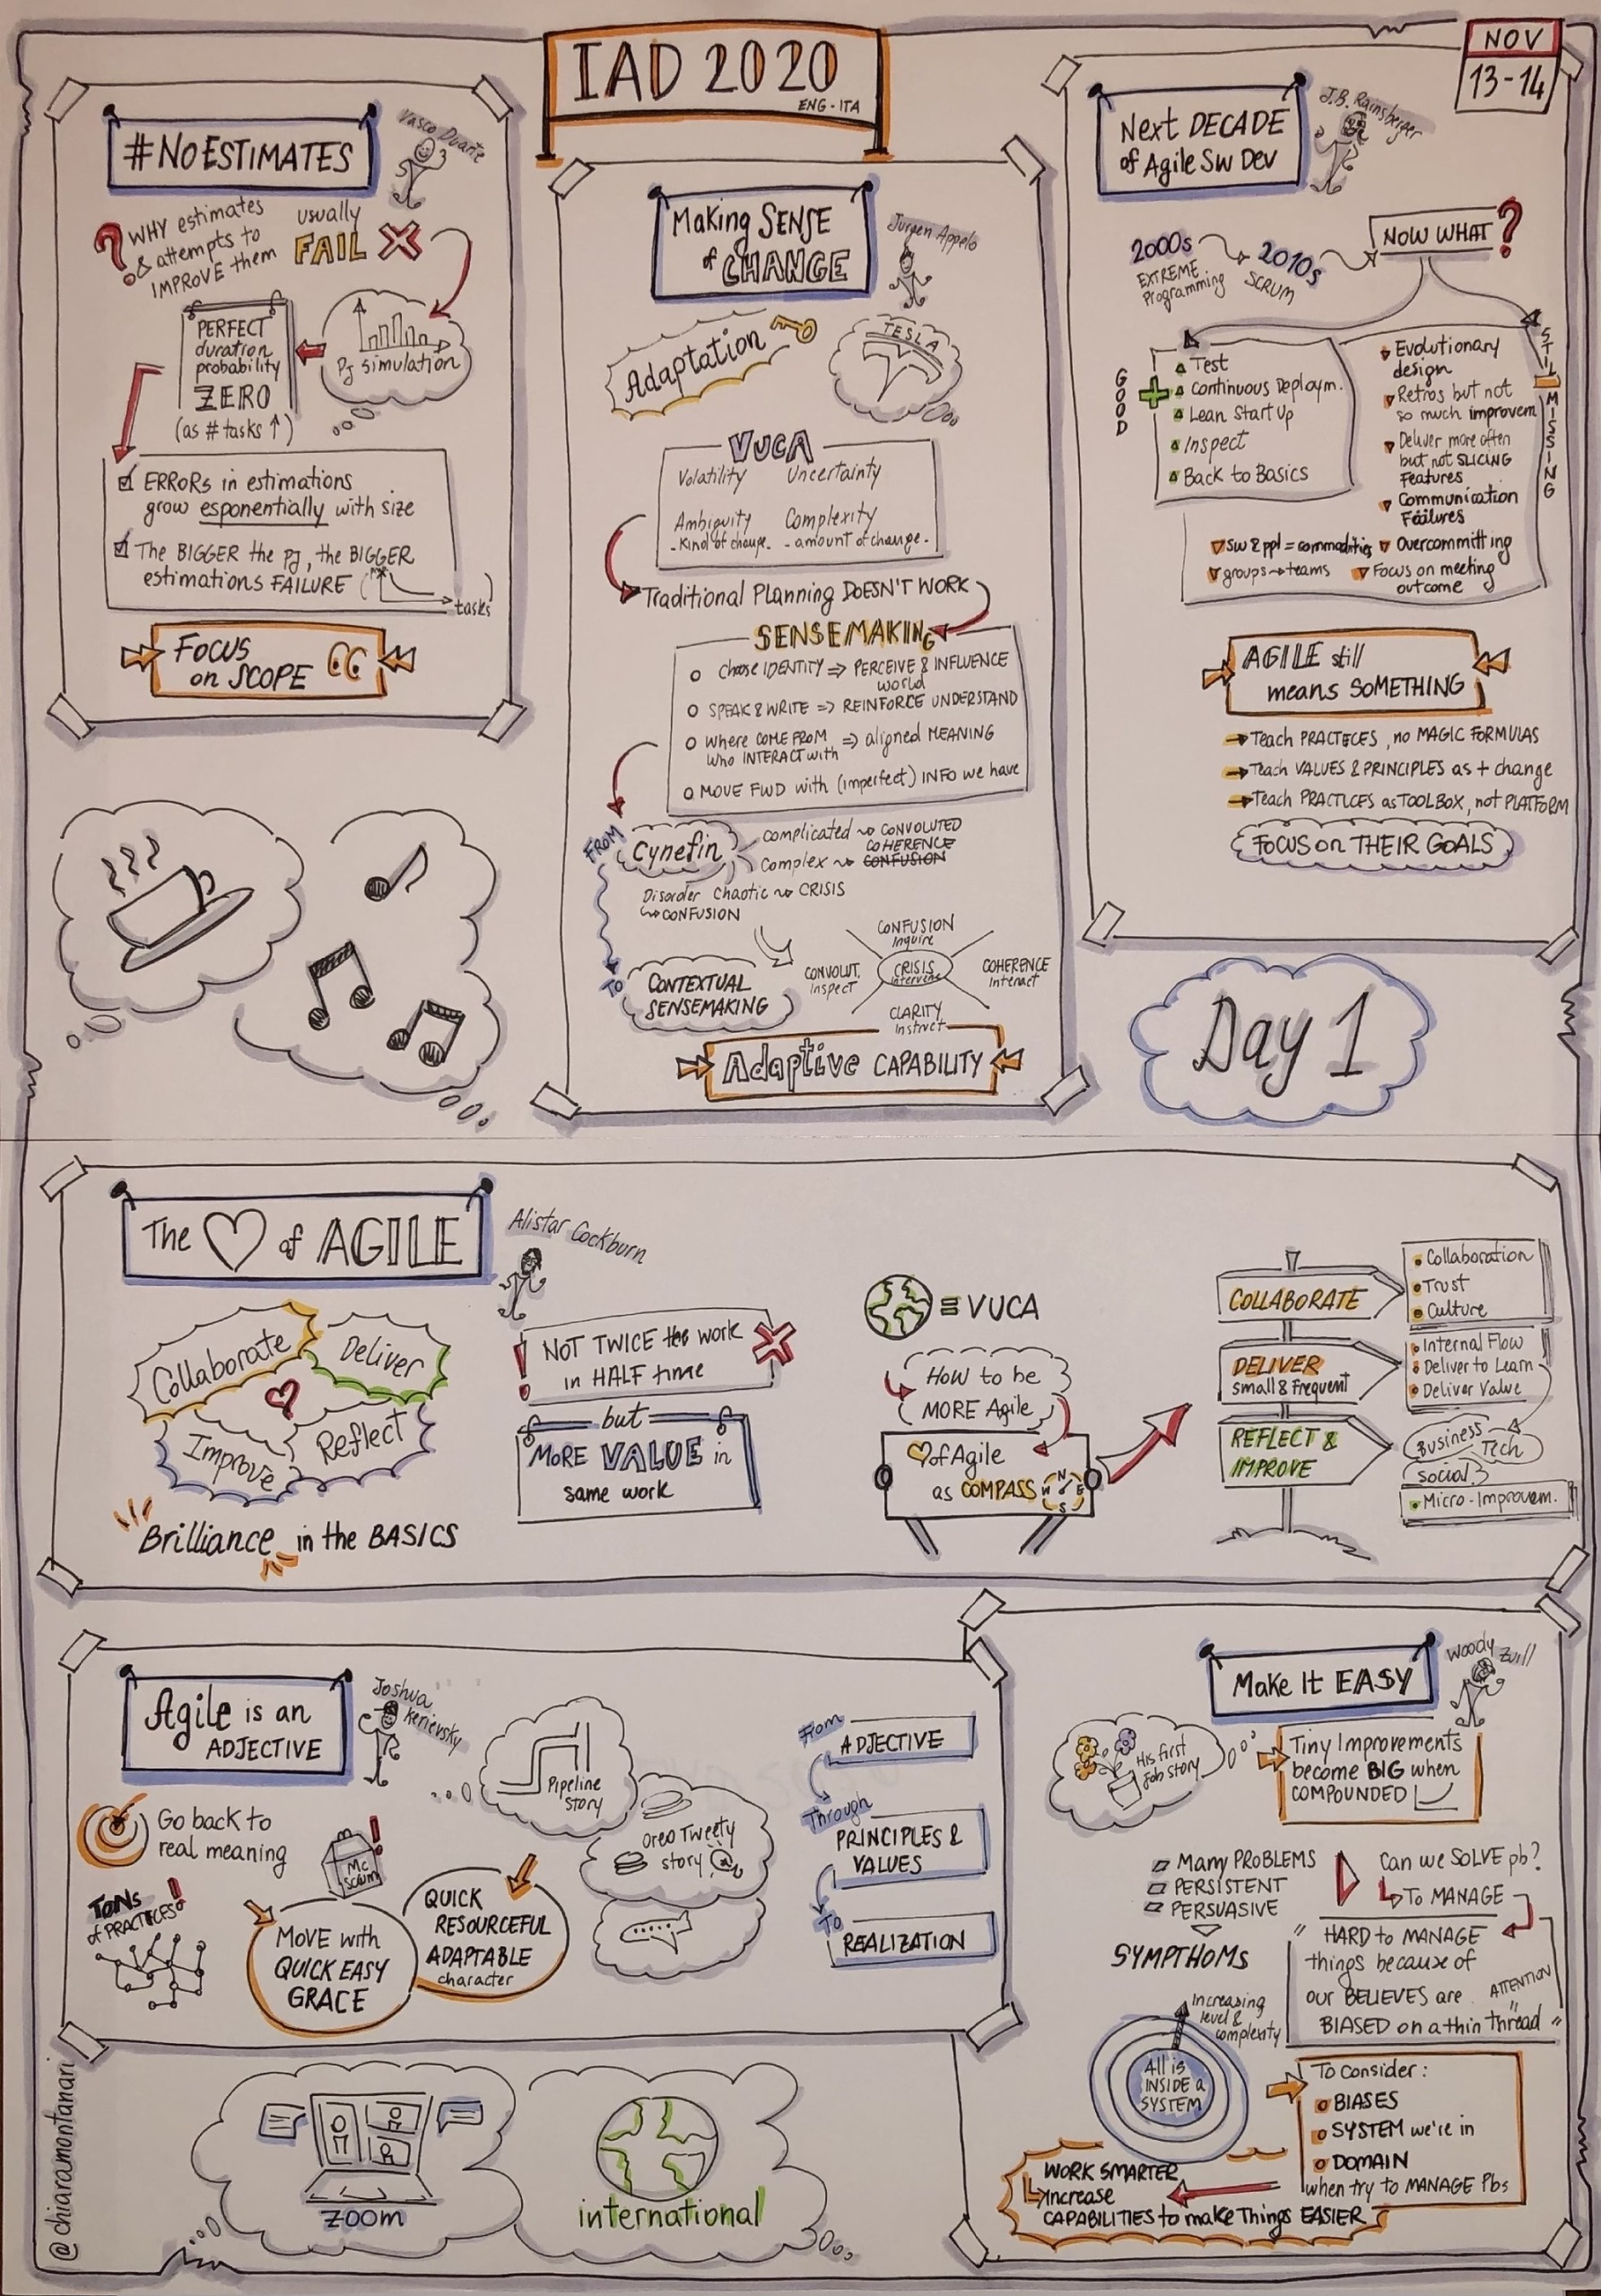 IAD 2020
ENG - ITA
NOV
13-14
#NoESTIMATES
Vasco Duarte
? WHY estimates
& attempts to
IMPROVE them
usually
FAIL
PJ simulation
PERFECT
duration
probability
ZERO
(as # tasks ↑)
ERRORs in estimations
grow esponentially with size
The BIGGER the PJ, the BIGGER
estimations FAILURE
tasks
FOCUS
on SCOPE
Making SENSE
of CHANGE
Jurgen Appelo
Adaptation
TESLA
VUCA
Volatility Uncertainty
Ambiguity Complexity
- Kind of change. - amount of change -
Traditional Planning DOESN'T WORK
SENSEMAKING
Choose IDENTITY => PERCEIVE & INFLUENCE
world
SPEAK & WRITE => REINFORCE UNDERSTAND
Where COME FROM => aligned MEANING
Who INTERACT with
MOVE FWD with (imperfect) INFO we have
FROM
Cynefin
complicated ~ CONVOLUTED
COHERENCE
Complex ~ CONFUSION
Disorder Chaotic ~ CRISIS
↳ CONFUSION
TO
CONTEXTUAL
SENSEMAKING
CONFUSION
Inquire
CONVOLUT.
Inspect
CRISIS
Intervene
COHERENCE
Interact
CLARITY
Instruct
Adaptive CAPABILITY
Next DECADE
of Agile SW Dev
J.B. Rainsberger
2000s
EXTREME
Programming
2010s
SCRUM
NOW WHAT ?
GOOD
Test
Continuous Deploym.
Lean Start Up
Inspect
Back to Basics
STILL MISSING
Evolutionary
design
Retros but not
so much improvem
Deliver more often
but not SLICING
Features
Communication
Failures
SW & ppl = commodities
Overcommitting
groups → teams
Focus on meeting
outcome
AGILE still
means SOMETHING
Teach PRACTECES, no MAGIC FORMULAS
Teach VALUES & PRINCIPLES as + change
Teach PRACTICES as TOOLBOX, not PLATFORM
FOCUS on THEIR GOALS
Day 1
The ♡ of AGILE
Alistar Cockburn
Collaborate
Deliver
Improve
Reflect
Brilliance in the BASICS
! NOT TWICE the work
in HALF time
but
MORE VALUE in
same work
≡ VUCA
How to be
MORE Agile
♡ of Agile
as COMPASS
N
W E
S
COLLABORATE
Collaboration
Trust
Culture
DELIVER
small & Frequent
Internal Flow
Deliver to Learn
Deliver Value
Business
Tech
social
REFLECT &
IMPROVE
Micro-Improvem.
Agile is an
ADJECTIVE
Joshua
Kerievsky
Go back to
real meaning
TONS !
of PRACTECES
Mc
Scrum
!
MOVE with
QUICK EASY
GRACE
QUICK
RESOURCEFUL
ADAPTABLE
character
Pipeline
story
Oreo Tweety
story
From
ADJECTIVE
Through
PRINCIPLES &
VALUES
To
REALIZATION
Make It EASY
Woody Zuill
His first
Job story
Tiny Improvements
become BIG when
COMPOUNDED
Many PROBLEMS
PERSISTENT
PERSUASIVE
SYMPTHOMS
Can we SOLVE pb?
↳ To MANAGE
" HARD to MANAGE
things because of
our BELIEVES are
BIASED on a thin thread "
ATTENTION
Increasing
level &
complexity
All is
INSIDE a
SYSTEM
To Consider :
BIASES
SYSTEM we're in
DOMAIN
when try to MANAGE Pbs
WORK SMARTER
↳ Increase
CAPABILITIES to make Things EASIER
zoom
international
@chiaramontanari